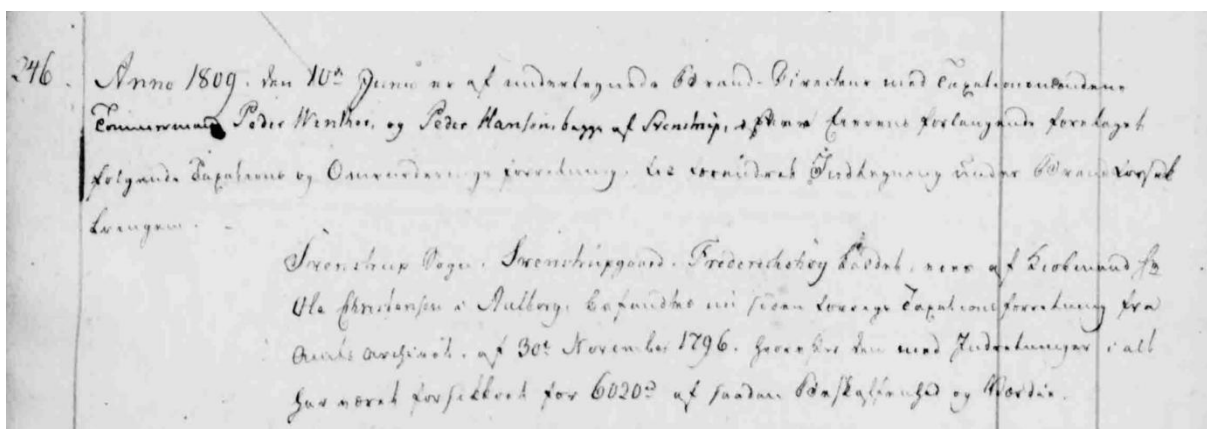 246. Anno 1809. den 10de Junii er af undertegnede Brand-Directeur med Taxationsmændene
Tømmermænd Peder Winther, og Peder Hansen af Svenstrup, efter Eierens forlangende foretaget
følgende Taxations og Omvurderings forretning, til forandret Indtegning under Brandforsik
kringen.
Svenstrup Sogn. Svenstrupgaard. Friderichshøy kaldet, eies af Kiøbmand Hr
Ole Christensen i Aalborg, befandtes nu siden forrige Taxationsforretning fra
Amts Archivet, af 30te November 1796. hvorefter den med Indretninger i alt
har været forsikkret for 6020rd af saadan Beskaffenhed og Værdie.